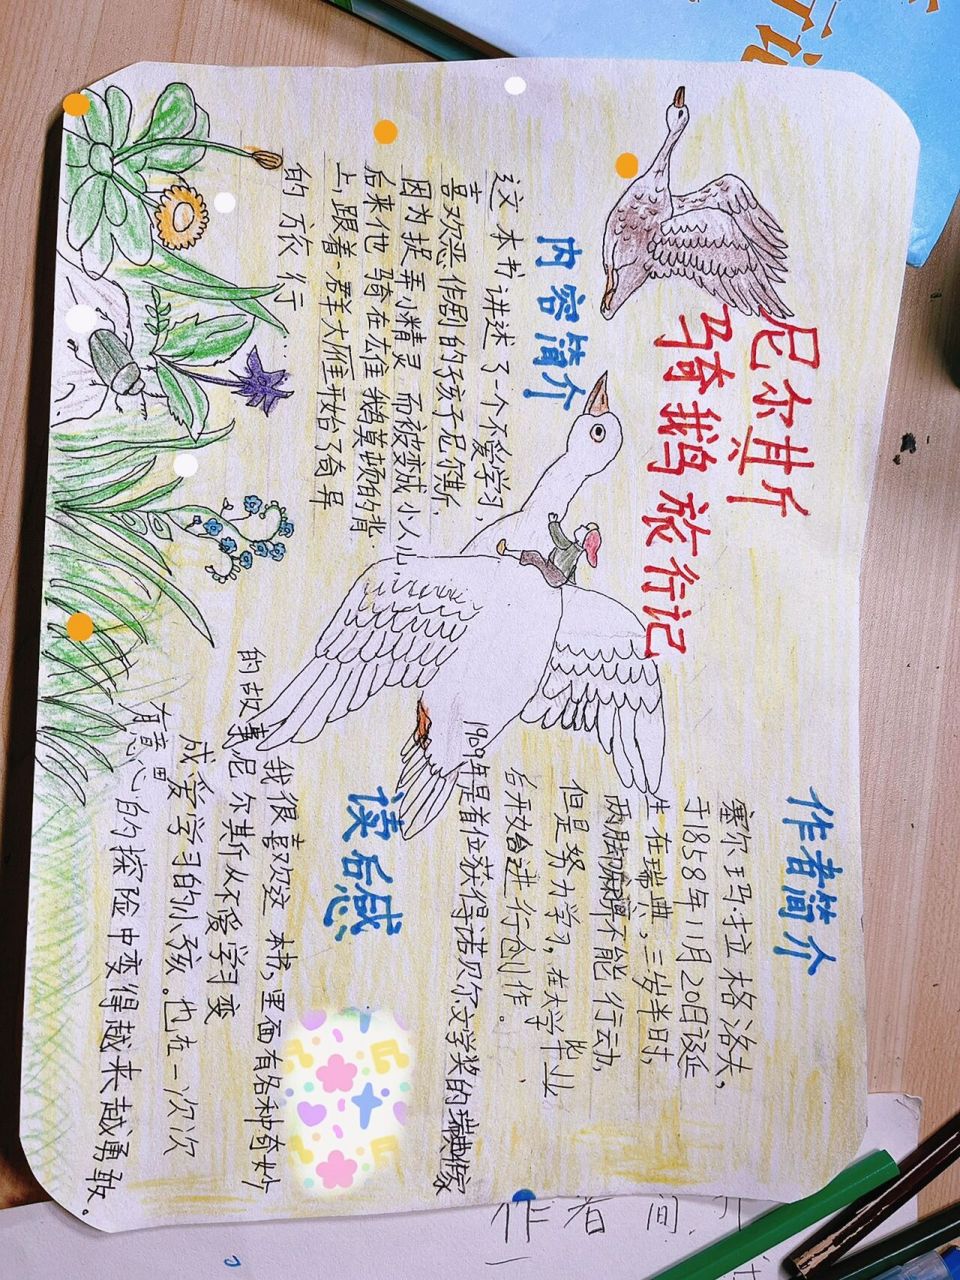 尼尔其斤
骑鹅旅行记
内容简介
这本书讲述了一个不爱学习,
喜欢恶作剧的孩子尼尔斯,
因为捉弄小精灵而被变成小人儿,
后来他骑在公雄鹅莫顿的背
上,跟着一群大雁开始了奇异
的旅行
作者简介
塞尔玛·拉格洛夫,
于1858年11月20日诞
生在瑞典。三岁半时,
两脚麻痹不能行动,
但是努力学习,在大学毕业
后开始进行创作。
1909年是首位获得诺贝尔文学奖的瑞典作家
读后感
我很喜欢这本书,里面有各种奇妙
的故事尼尔斯从不爱学习变
成爱学习的小孩。也在一次次
有意思的探险中变得越来越勇敢。
作者间